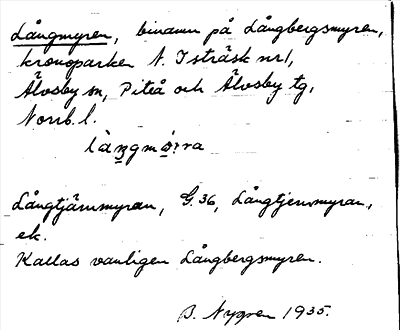 Långmyren, binamn på Långbergsmyren,
kronoparken N. Isträsk nr 1,
Älvsby sn, Piteå och Älvsby tg,
Norrb. l.
Långtjärnmyran, G. 36, Långtjernmyran,
ek.
Kallas vanligen Långbergsmyren.
B. Nygren 1935.